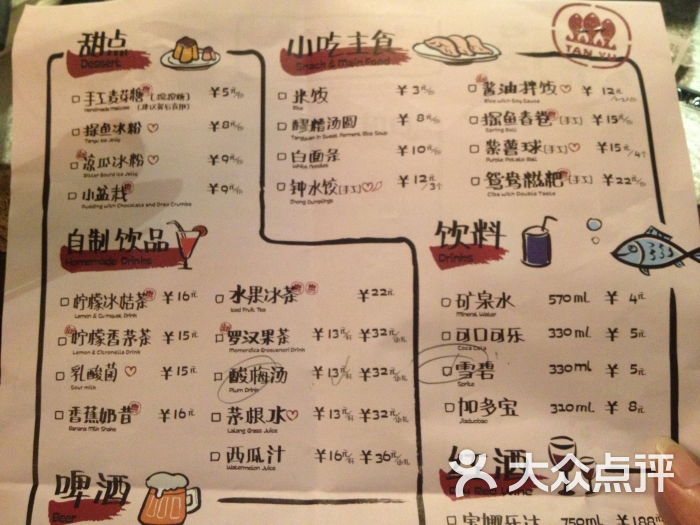 甜点
Dessert
手工麦芽糖(搅搅糖) ￥5元/份
Handmade Maltose (建议餐后食用)
探鱼冰粉 ￥8元/份
Tanyu Ice Jelly
凉瓜冰粉 ￥9元/份
Bitter Gourd Ice Jelly
小盆栽 ￥9元/份
Pudding with Chocolate and Oreo Crumbs
小吃主食
Snack & Main Food
米饭 ￥3元/份
Rice
醪糟汤圆 ￥8元/份
Tangyuan in Sweet Ferment Rice Soup
白面条 ￥10元/份
White Noodles
钟水饺(手工) ￥12元/3个
Zhong Dumplings
TAN YU
酱油拌饭 ￥12元
Rice with Soy Sauce
探鱼春卷(手工) ￥15元/份
Spring Roll
紫薯球(手工) ￥15元/4个
Purple Potato Ball
鸳鸯糍粑(手工) ￥22元/份
Ciba with Double Taste
自制饮品
Homemade Drinks
柠檬冰桔茶 ￥16元
Lemon & Cumquat Drink
柠檬香茅茶 ￥15元
Lemon & Citronella Drink
乳酸菌 ￥15元
Sour milk
香蕉奶昔 ￥16元
Banana Milk Shake
水果冰茶 ￥22元
Iced Fruit Tea
罗汉果茶 ￥13元/杯 ￥32元/扎
Momordica Grosvenori Drink
酸梅汤 ￥13元/杯 ￥32元/扎
Plum Drink
茅根水 ￥13元/杯 ￥32元/扎
Lalang Grass Juice
西瓜汁 ￥16元/杯 ￥36元/扎
Watermelon Juice
饮料
Drinks
矿泉水 570ml ￥4元
Mineral Water
可口可乐 330ml ￥5元
Coca Cola
雪碧 330ml ￥5元
Sprite
加多宝 310ml ￥8元
Jiaduobao
啤酒
Beer
酒
Wine
750ml ￥188元
大众点评